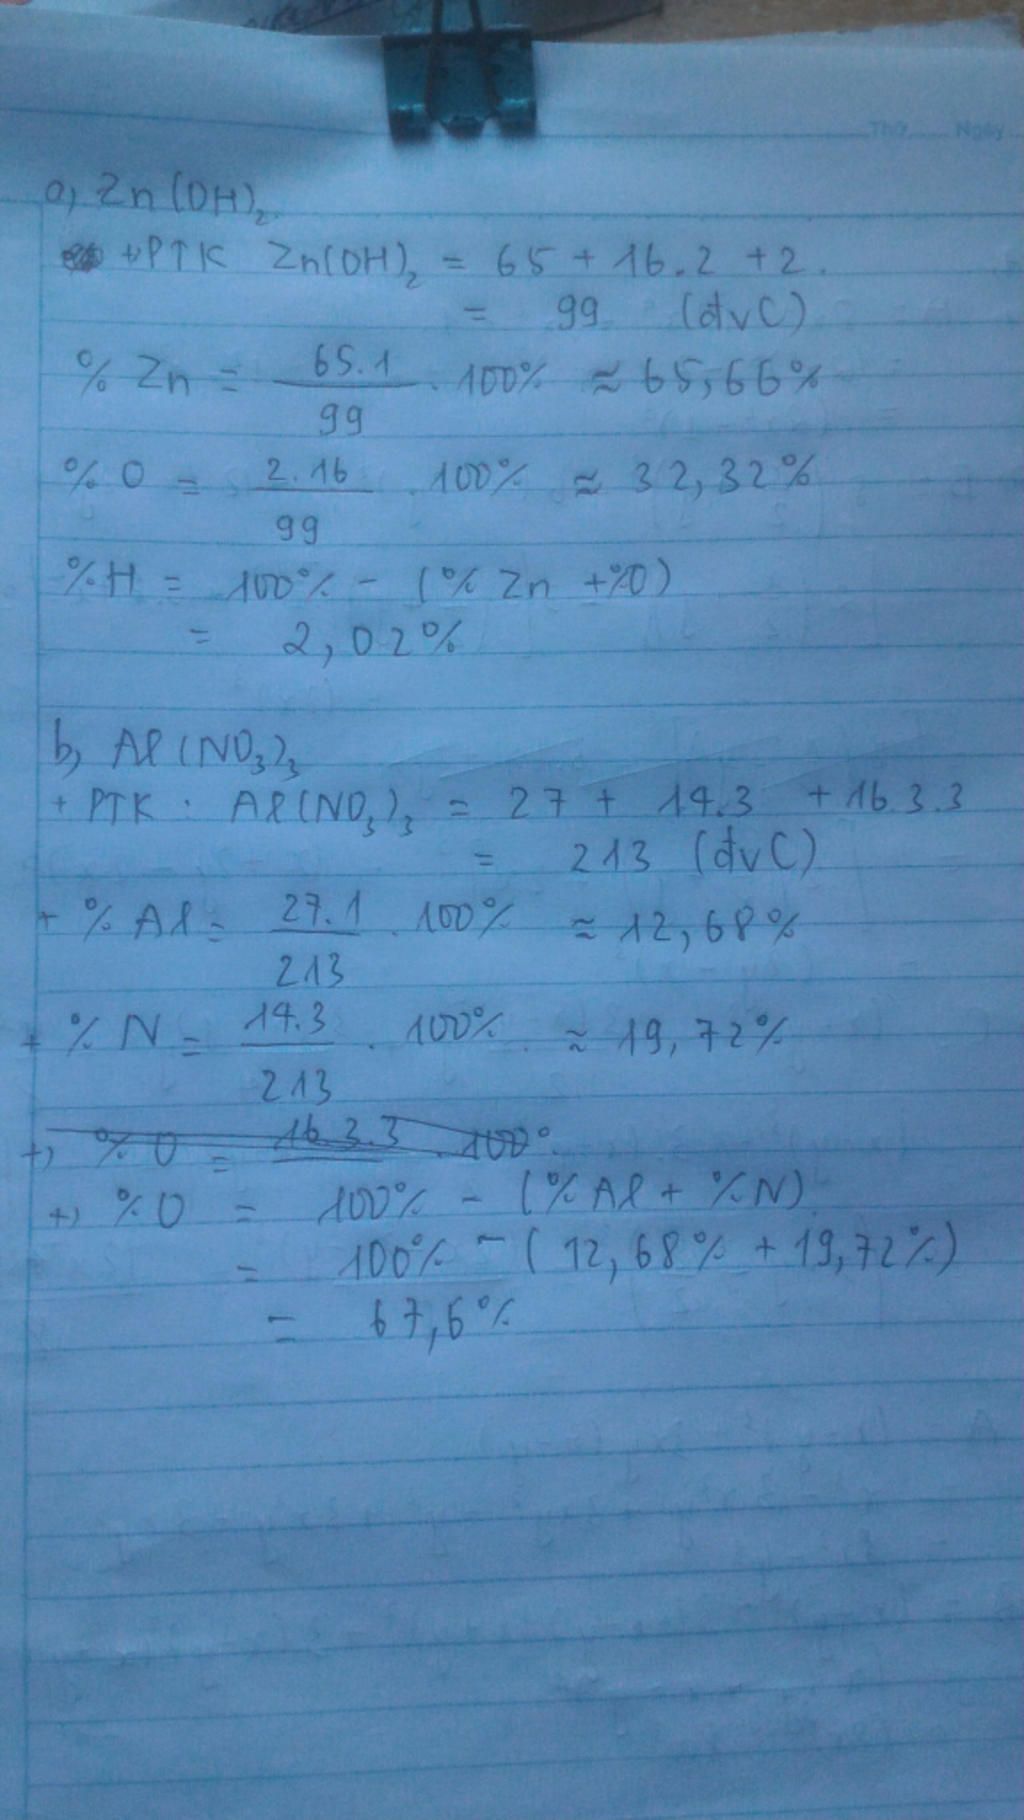 Thứ Ngày
a, Zn(OH)₂
+ PTK Zn(OH)₂ = 65 + 16.2 + 2.
= 99 (đvC)
% Zn = 65.1/99 . 100% ≈ 65,66%
% O = 2.16/99 . 100% ≈ 32,32%
%H = 100% - (% Zn + %O)
= 2,02%
b, Al(NO₃)₃
+ PTK : Al(NO₃)₃ = 27 + 14.3 + 16.3.3
= 213 (đvC)
+ % Al = 27.1/213 . 100% ≈ 12,68%
+ % N = 14.3/213 . 100% ≈ 19,72%
+) % O = 16.3.3 . 100%
+) % O = 100% - (% Al + %N)
= 100% - (12,68% + 19,72%)
= 67,6%